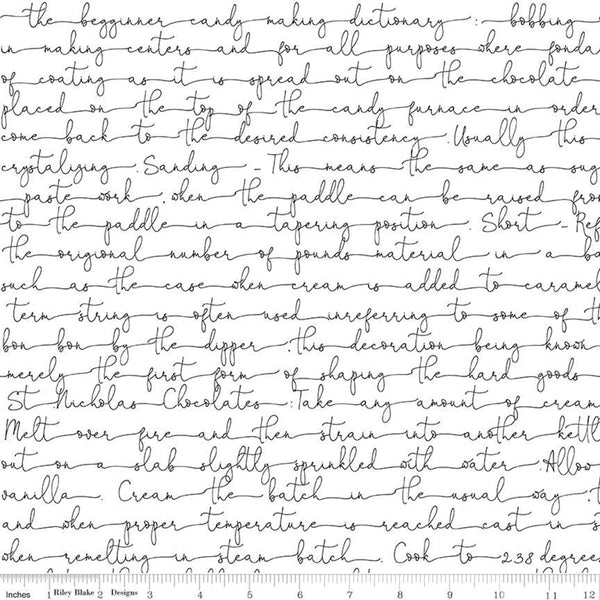 the begginner candy making dictionary : bobbing
in making centers and for all purposes where fonda
of coating as it is spread out on the chocolate
placed on the top of the candy furnace in order
come back to the desired consistency . Usually this
crystalizing . Sanding - This means the same as sug
paste work . when the paddle can be raised from
to the paddle in a tapering position . Short - Ref
the original number of pounds material in a ba
such as the case when cream is added to caramel
term string is often used inreferring to some of th
bon bon by the dipper . this decoration being known
merely the first form of shaping the hard goods
St . Nicholas Chocolates : Take any amount of cream
Melt over fire and then strain into another kettl
out on a slab slightly sprinkled with water . Allow
vanilla . Cream the batch in the usual way .
and when proper temperature is reached cast in s
when remelting in steam batch . Cook to 238 degree
Inches 1 Riley Blake 2 Designs 3 4 5 6 7 8 9 10 11 12